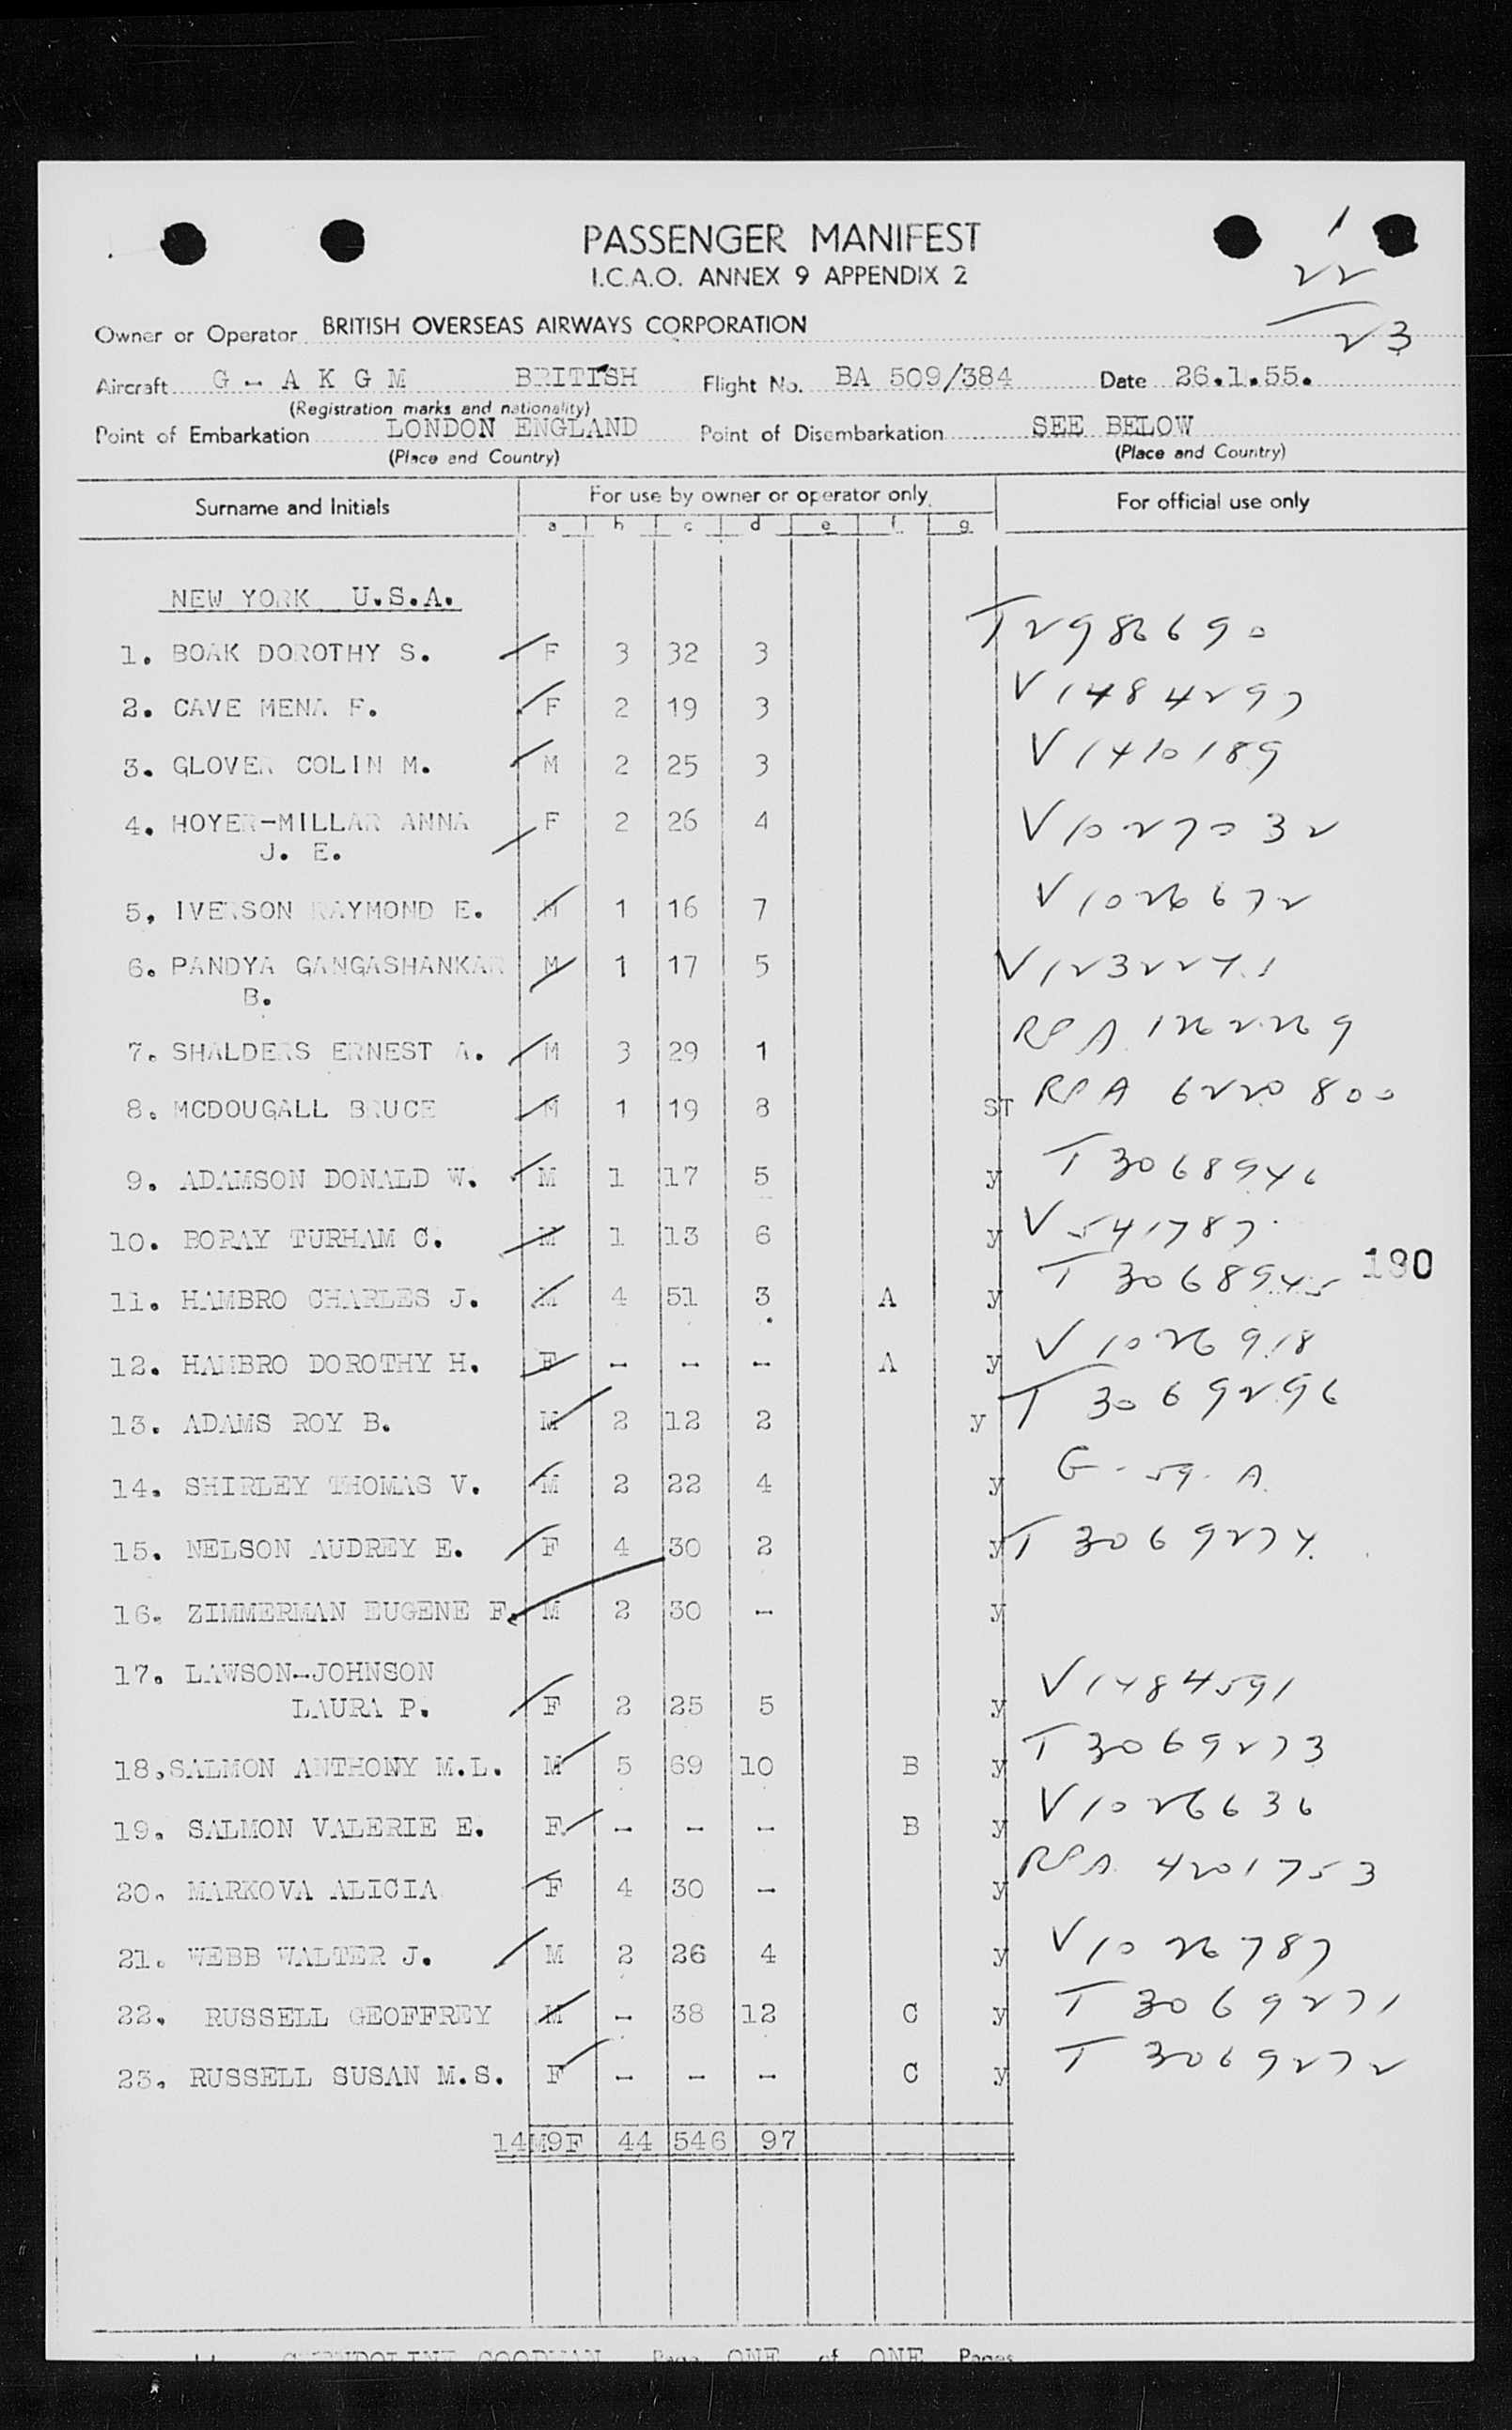 PASSENGER MANIFEST
I.C.A.O. ANNEX 9 APPENDIX 2
1
22
23
Owner or Operator BRITISH OVERSEAS AIRWAYS CORPORATION
Aircraft G - A K G M BRITISH Flight No. BA 509/384 Date 26.1.55.
(Registration marks and nationality)
Point of Embarkation LONDON ENGLAND Point of Disembarkation SEE BELOW
(Place and Country) (Place and Country)
Surname and Initials For use by owner or operator only For official use only
a b c d e f g
NEW YORK U.S.A.
1. BOAK DOROTHY S. F 3 32 3 T2986690
2. CAVE MENA F. F 2 19 3 V1484297
3. GLOVER COLIN M. M 2 25 3 V1410189
4. HOYER-MILLAR ANNA F 2 26 4 V1027032
J. E.
5. IVERSON RAYMOND E. M 1 16 7 V1026672
6. PANDYA GANGASHANKAR M 1 17 5 V1232271
B.
7. SHALDERS ERNEST A. M 3 29 1 RPA
8. MCDOUGALL BRUCE M 1 19 8 ST RPA 6220800
9. ADAMSON DONALD W. M 1 17 5 y T 3068946
10. BORAY TURHAM C. M 1 13 6 y V 541787
11. HAMBRO CHARLES J. M 4 51 3 A y T 3068945 190
12. HAMBRO DOROTHY H. F - - - A y V 1026918
13. ADAMS ROY B. M 2 12 2 y T 3069296
14. SHIRLEY THOMAS V. M 2 22 4 y G-59-A
15. NELSON AUDREY E. F 4 30 2 y T 3069274
16. ZIMMERMAN EUGENE F. M 2 30 - y
17. LAWSON-JOHNSON
LAURA P. F 2 25 5 y V1484591
18. SALMON ANTHONY M.L. M 5 69 10 B y T 3069273
19. SALMON VALERIE E. F - - - B y V1026636
20. MARKOVA ALICIA F 4 30 - y RPA 4201753
21. WEBB WALTER J. M 2 26 4 y V1026787
22. RUSSELL GEOFFREY M - 38 12 C y T 3069271
23. RUSSELL SUSAN M.S. F - - - C y T 3069272
14M9F 44 546 97
GOODMAN Page ONE of ONE Pages